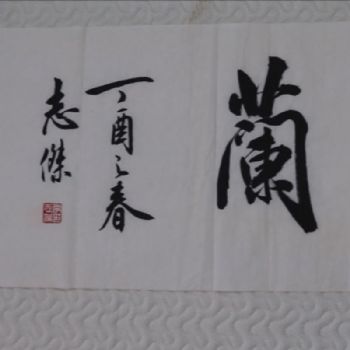 蘭
丁酉之春
志傑